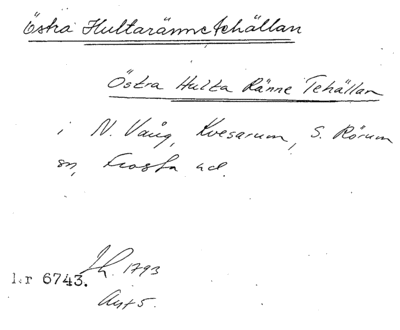 Östra Hultarännetehällan
Östra Hulta Ränne Tehällan
i N. Vång, Kvesarum, S. Rörum
sn, Frosta hd.
1793
Nr 6743.
Art 5.